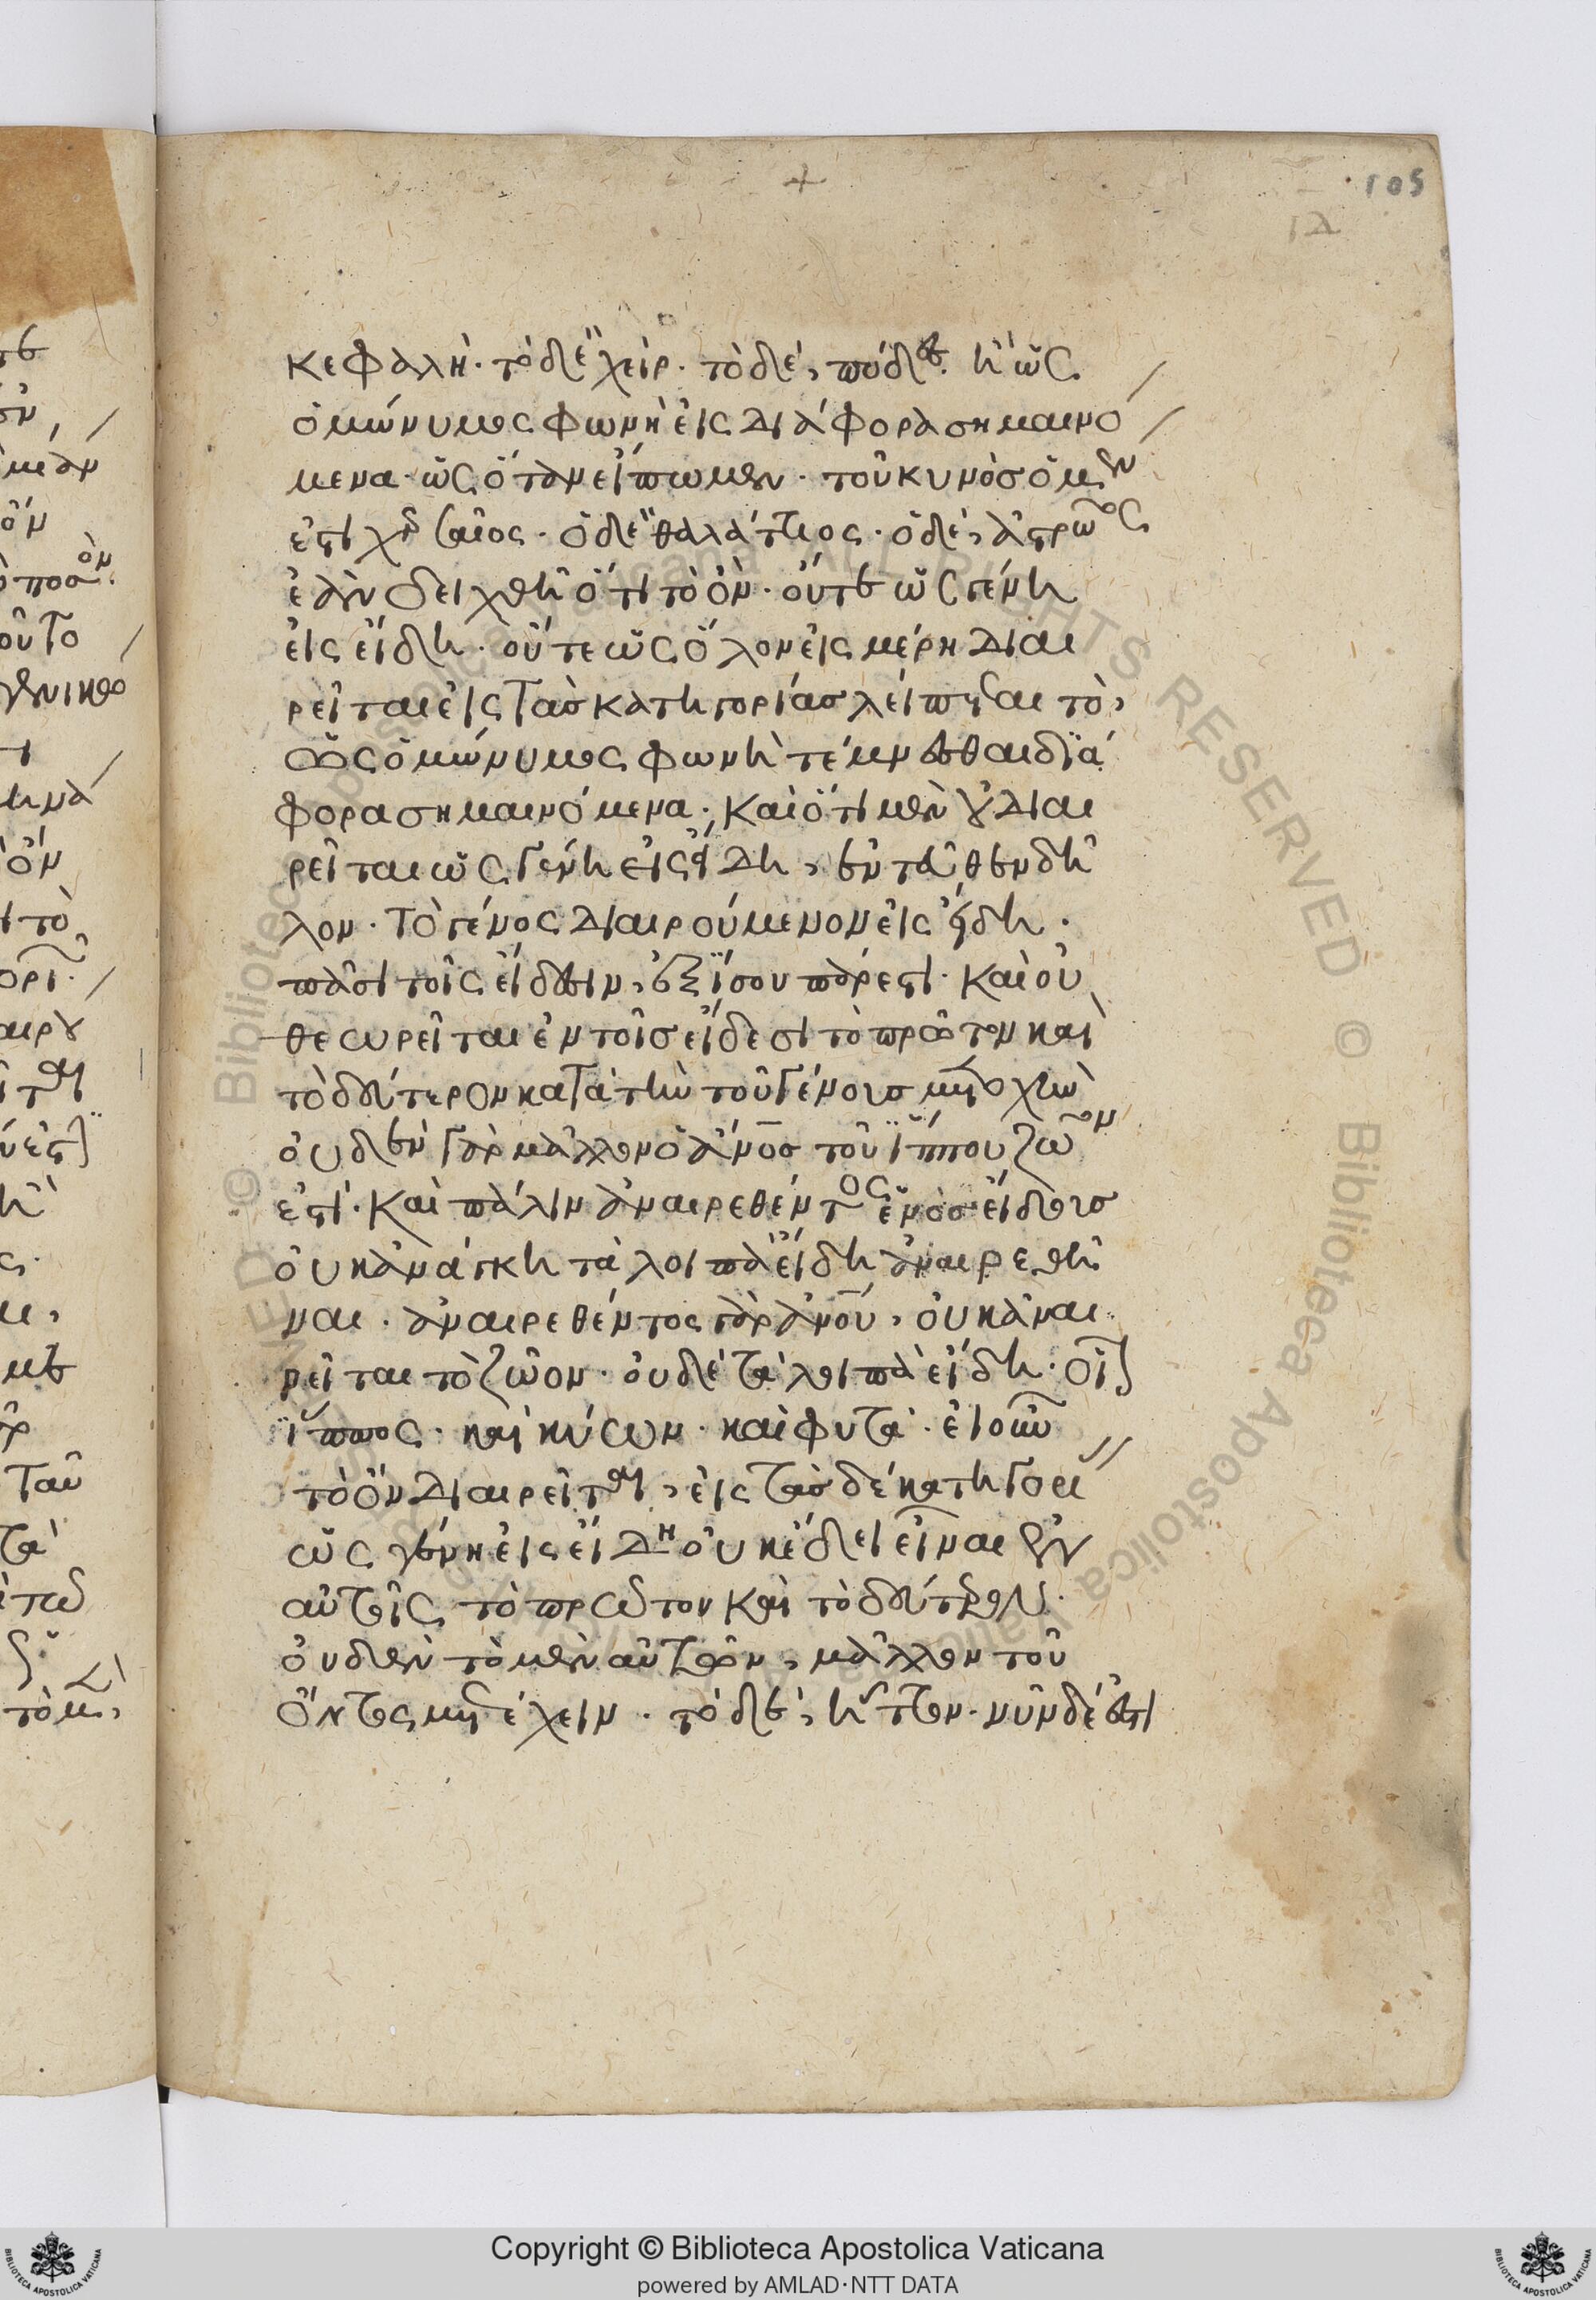 105
ιδ
κεφαλὴ· τὸ δὲ χείρ· τὸ δέ, πόδες· ἢ ὡς
ὁμώνυμος φωνὴ εἰς διάφορα σημαινό
μενα· ὡς ὅταν εἴπωμεν· τοῦ κυνὸς ὁ μὲν
ἐστι χερσαῖος· ὁ δὲ θαλάττιος· ὁ δὲ, ἀστρῶος
ἐὰν δειχθῆ ὅτι τὸ ὄν· οὔτε ὡς γένη
εἰς εἴδη· οὔτε ὡς ὅλον εἰς μέρη διαι
ρεῖται εἰς τὰς κατηγορίας λείπεται τὸ,
ὡς ὁμώνυμος φωνὴ τέμνεσθαι διά
φορα σημαινόμενα· καὶ ὅτι μὲν οὐ διαι
ρεῖται ὡς γένη εἰς εἴδη, ἐνταῦθεν δῆ
λον· τὸ γένος διαιρούμενον εἰς εἴδη·
πᾶσι τοῖς εἴδεσιν, ἐξίσου πάρεστι· καὶ οὐ
θεωρεῖται ἐν τοῖς εἴδεσι τὸ πρῶτον καὶ
τὸ δεύτερον κατὰ τὴν τοῦ γένους μετοχὴν
οὐδὲν γὰρ μᾶλλον ὁ ἄνος τοῦ ἵππου ζῶον
ἐστί· καὶ πάλιν ἀναιρεθέντος ἑνὸς εἴδους
οὐκ ἀνάγκη τὰ λοιπὰ εἴδη ἀναιρεθῆ
ναι· ἀναιρεθέντος γὰρ ἀνου, οὐκ ἀναι
ρεῖται τὸ ζῶον· οὐδὲ τὰ λοιπὰ εἴδη· οἷον
ἵππος· καὶ κύων· καὶ φυτά· εἰ οὖν
τὸ ὂν διαιρεῖται, εἰς τὰς δέκα κατηγορί
ὡς γένη εἰς εἴδη οὐκ ἔδει εἶναι ἐν
αὐτοῖς τὸ πρῶτον καὶ τὸ δεύτερον·
οὐδὲν τὸ μὲν αὐτῶν, μᾶλλον τοῦ
ὄντος μετέχειν· τὸ δὲ, ἧττον· νῦν δέ ἐστι
Copyright © Biblioteca Apostolica Vaticana
powered by AMLAD·NTT DATA